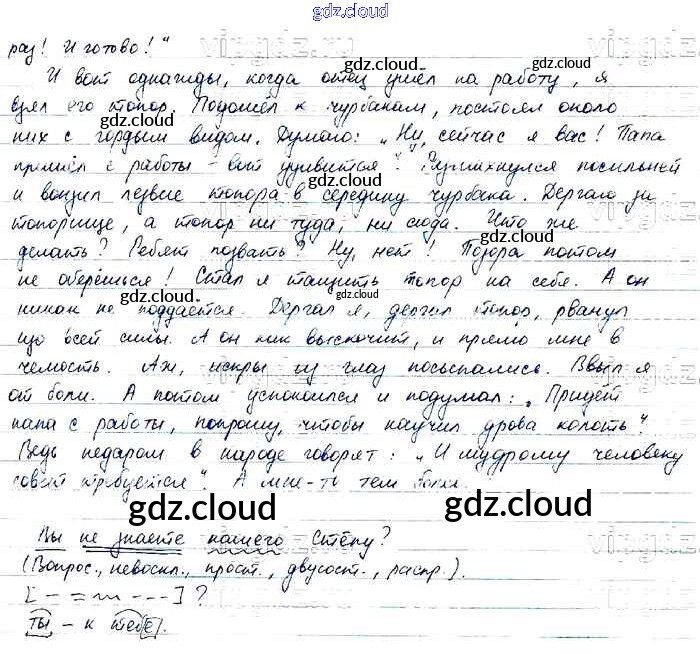 gdz.cloud
раз! И готово!"
И вот однажды, когда отец ушёл на работу, я
взял его топор. Подошёл к чурбакам, постоял около
них с гордым видом. Думаю: „Ну, сейчас я вас! Папа
пришёл с работы – вот удивится!" Размахнулся посильней
и вонзил лезвие топора в середину чурбака. Дергаю за
топорище, а топор ни туда, ни сюда. Что же
делать? Ребят позвать? Ну, нет! Позора потом
не оберёшься! Стал я тащить топор на себя. А он
никак не поддаётся. Дергал я, дергал топор, рванул
изо всей силы. А он как выскочит, и прямо мне в
челюсть. Аж, искры из глаз посыпались. Взвыл я
от боли. А потом успокоился и подумал: „Придёт
папа с работы, попрошу, чтобы научил дрова колоть".
Ведь недаром в народе говорят: „И мудрому человеку
совет требуется". А мне-то тем более.
gdz.cloud
Вы не знаете нашего Стёпу?
(Вопрос., невоскл., прост., двусост., распр.).
?
ты – к тебе.